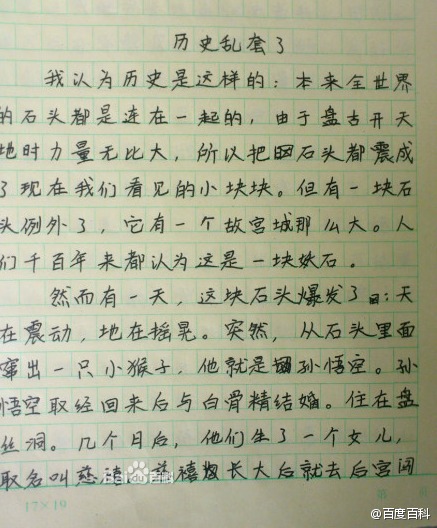 历史乱套了
我认为历史是这样的：本来全世界
的石头都是连在一起的，由于盘古开天
地时力量无比大，所以把石头都震成
了现在我们看见的小块块。但有一块石
头例外了，它有一个故宫城那么大。人
们千百年来都认为这是一块妖石。
然而有一天，这块石头爆发了：天
在震动，地在摇晃。突然，从石头里面
窜出一只小猴子，他就是孙悟空。孙
悟空取经回来后与白骨精结婚。住在盘
丝洞。几个月后，他们生了一个女儿，
取名叫慈禧。慈禧长大后就去后宫闯
Bai百科
17×19
第
@百度百科